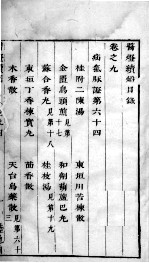 醫壘續編目錄
卷之九
疝氣脈證第六十四
桂附二陳湯
東垣川苦楝散
金鈴烏頭煎見第十七
和劑葫蘆巴丸
蘇合香丸見第十
桂枝湯見第十九
東垣丁香楝實丸
茴香散
木香散
天台烏藥散見第六十三